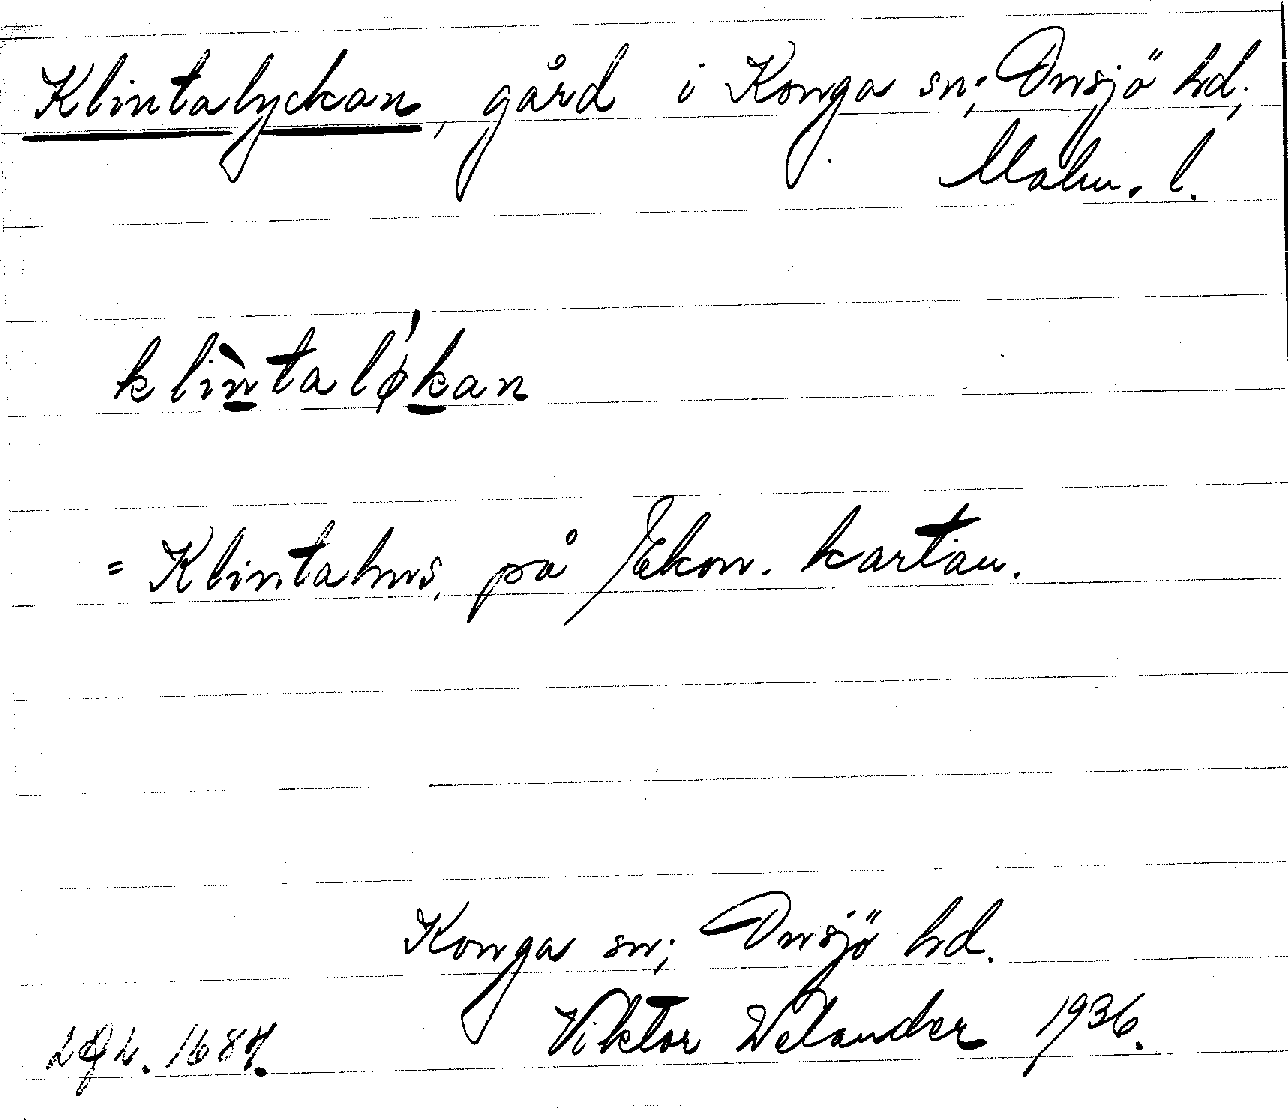 Klintalyckan, gård i Konga sn; Onsjö hd;
Malm. l.
klìntalǿkan
= Klintahus, på Ekon. kartan.
Konga sn; Onsjö hd.
Viktor Welander 1936.
1687.